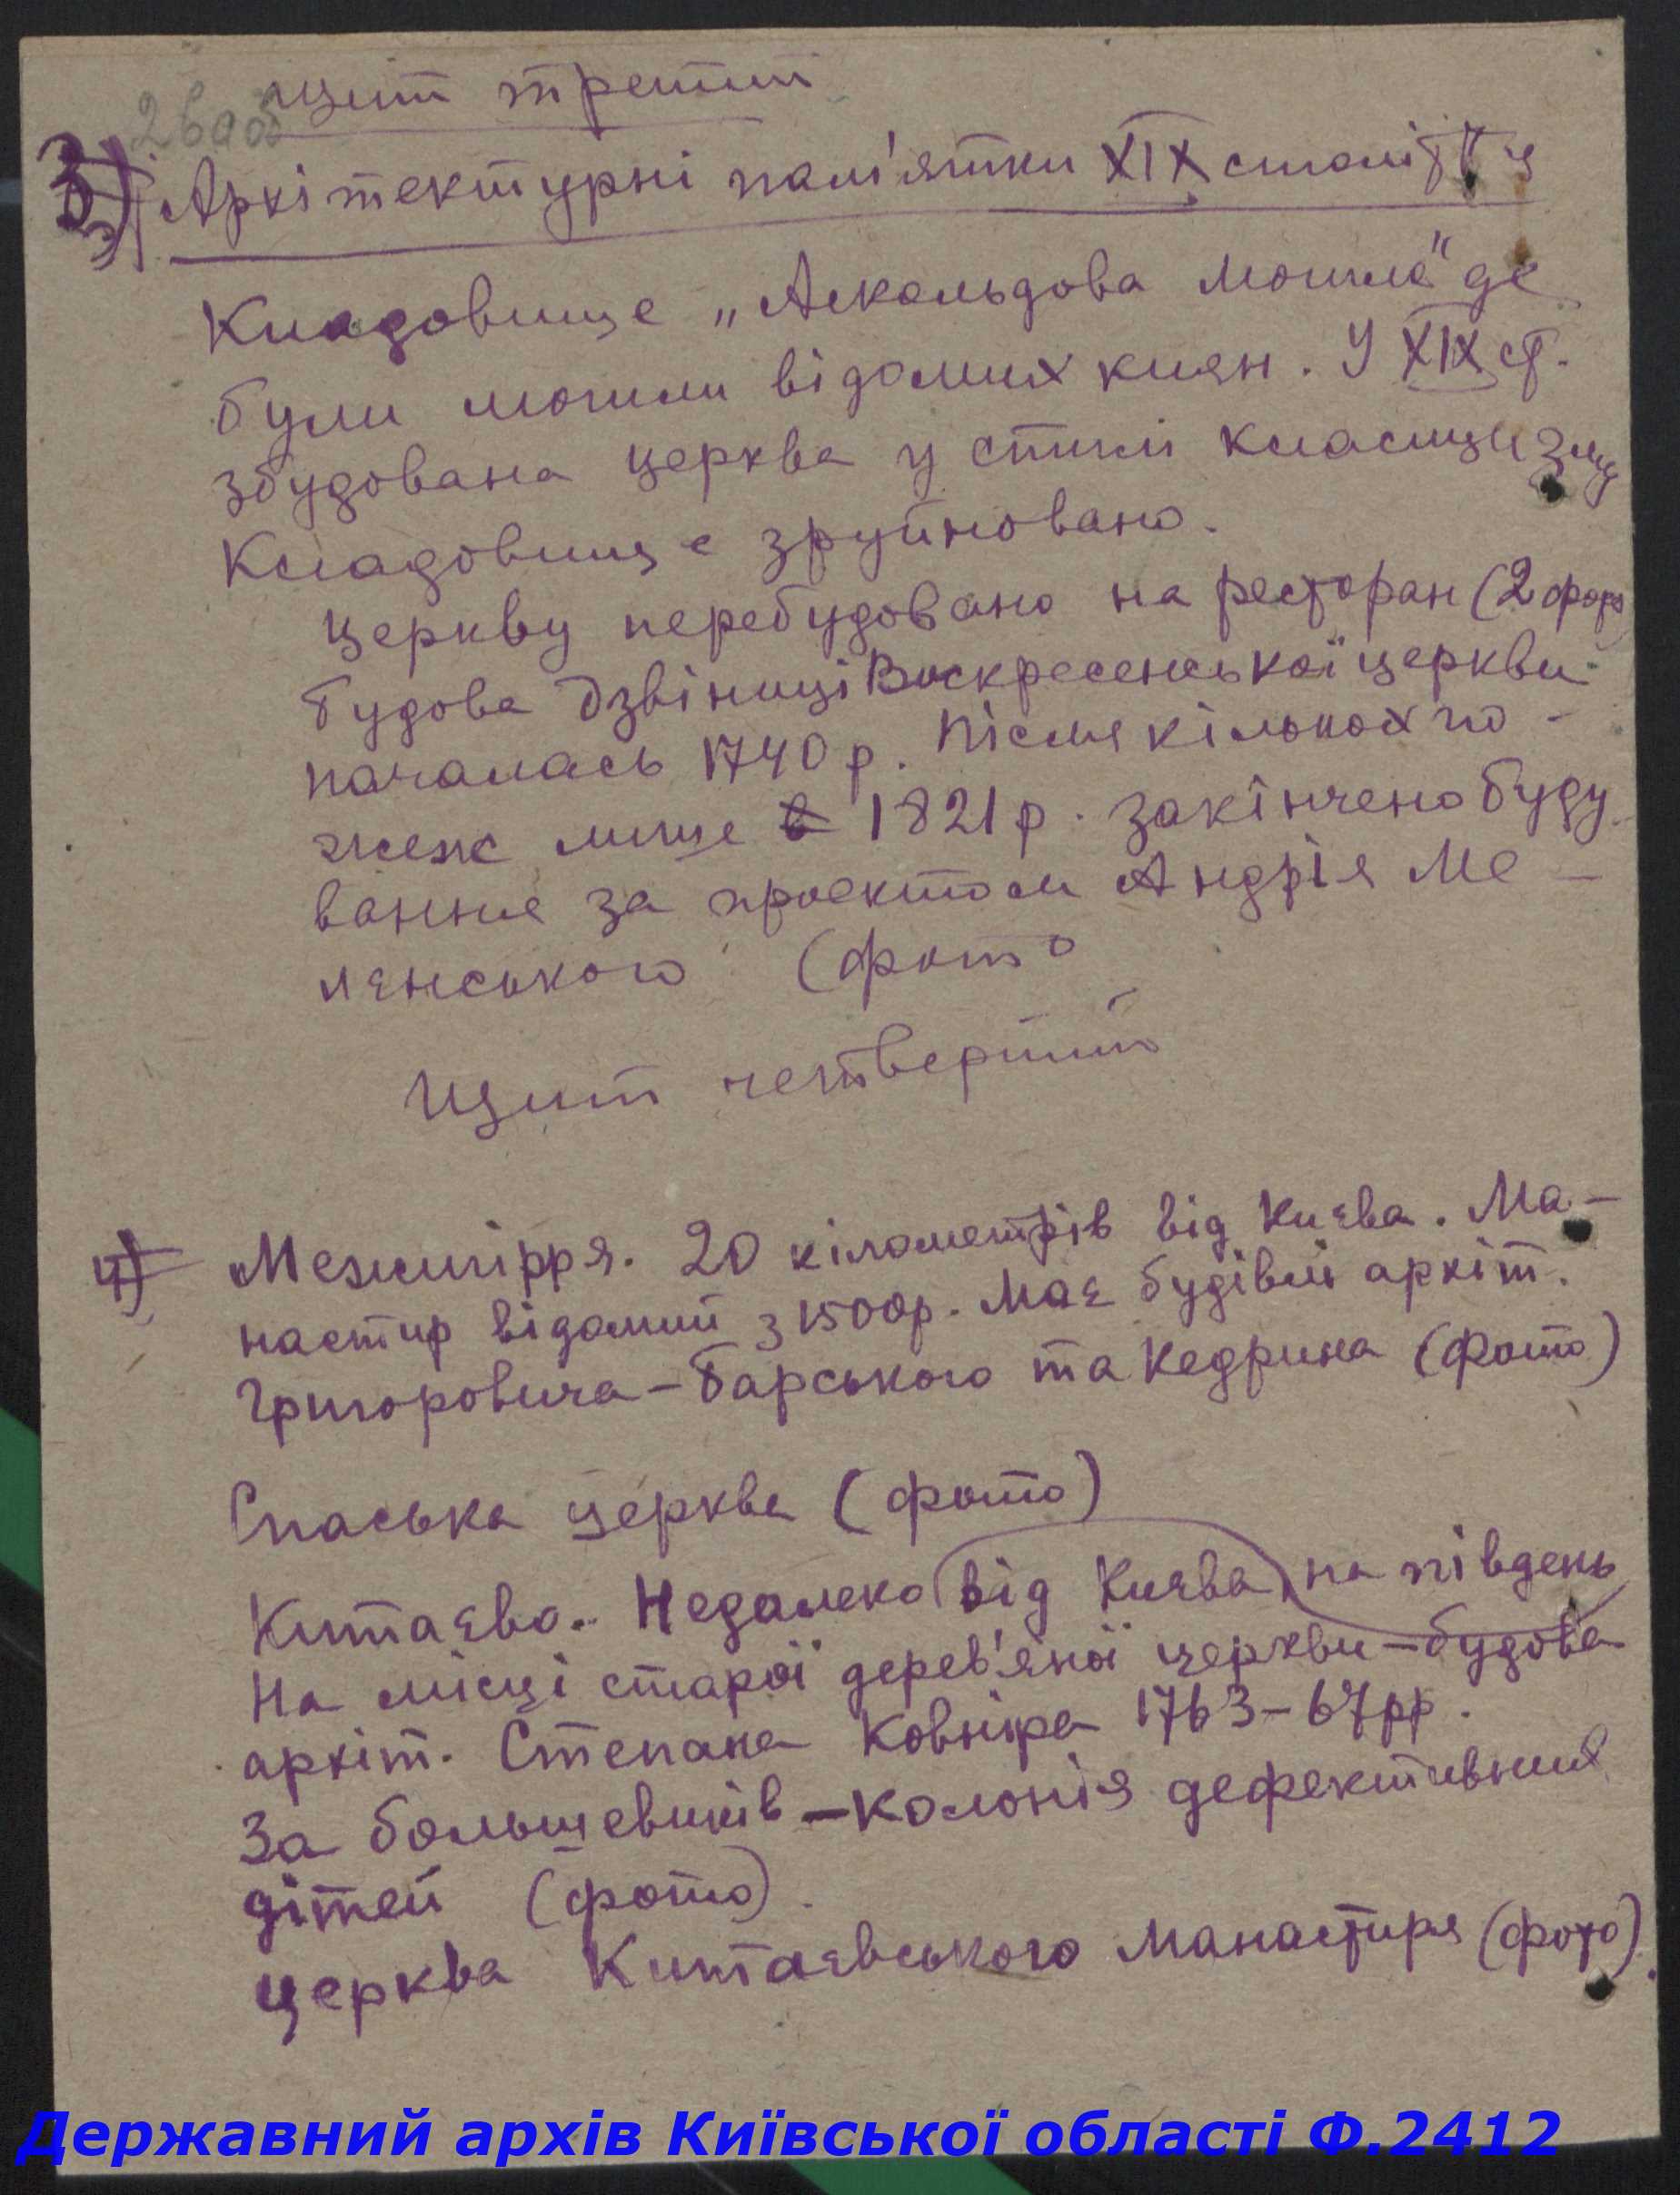 Щит третий
26 об
3) Архітектурні пам'ятки XIX століття
Кладовище „Аскольдова могила" де
були могили відомих киян. У XIX ст.
збудована церква у стилі класицизму
Кладовище зруйновано.
Церкву перебудовано на ресторан (2 фото)
Будова дзвіниці Воскресенської церкви
почалась 1740 р. Після кількох по-
жеж лише в 1821 р. закінчено буду-
вання за проектом Андрія Ме-
ленського (фото
Щит четвертий
4) Межигірря. 20 кілометрів від Києва. Ма-
настир відомий з 1500р. Має будівлі архіт.
Григоровича-Барського та Кедрина (фото)
Спаська церква (фото)
Китаєво. Недалеко від Києва на південь
На місці старої дерев'яної церкви - будова
архіт. Степана Ковніра 1763-67рр.
За большевиків - колонія дефективних
дітей (фото).
Церква Китаєвського манастиря (фото).
Державний архів Київської області Ф.2412